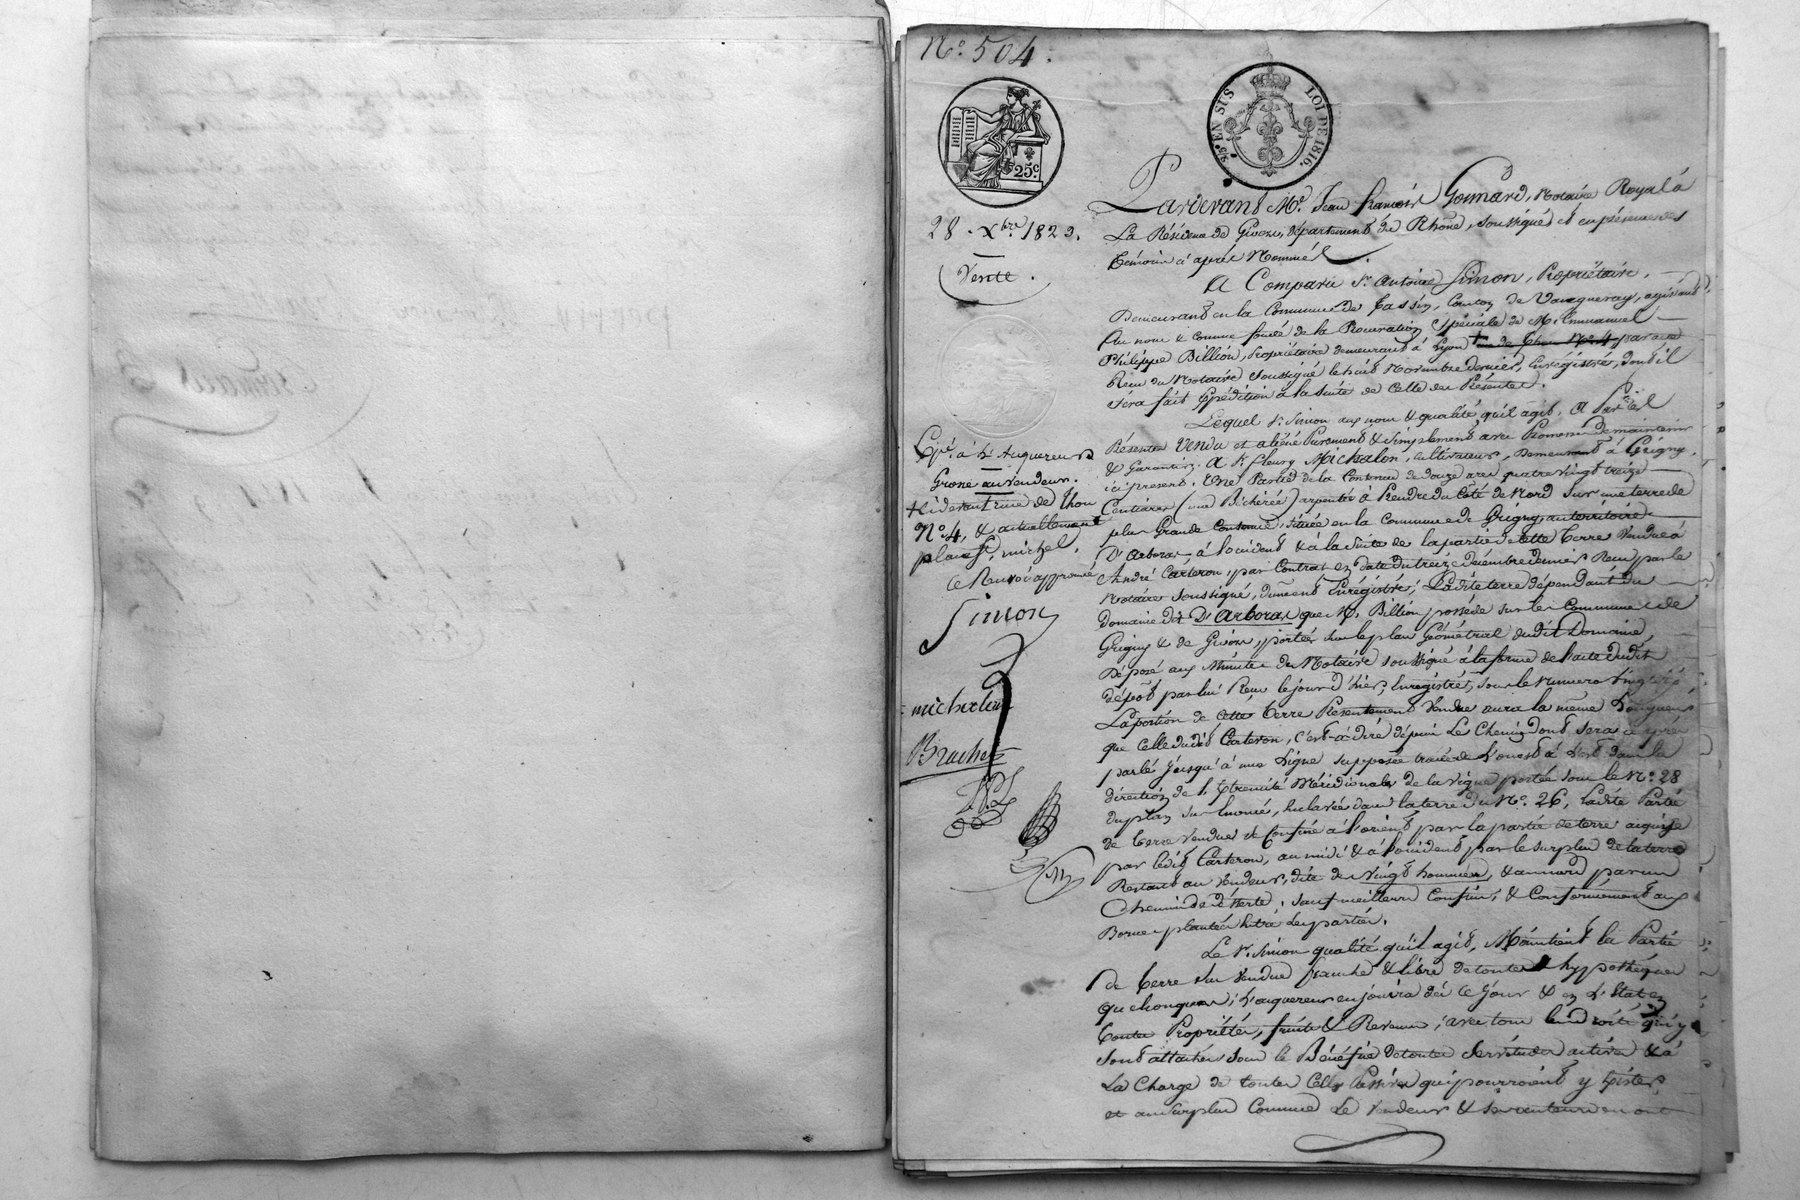 N.o 504.
25c.
2/10 EN SUS LOI DE 1816.
28. Xbre 1823.
Vente.
Pardevant Me. Jean François Gomard, Notaire Royal à
La Résidence de Givors, département du Rhône, soussigné et en présence des
témoins ci après Nommés.
A Comparu Sr. Antoine Simon, Propriétaire,
Demeurant en la Commune de Tassin, Canton de Vaugneray, agissant
Au nom & comme fondé de la Procuration Spéciale de M. Emmanuel
Philippe Billion, Propriétaire demeurant à Lyon + rue de Thou No. 4, par acte
Reçu du Notaire soussigné le huit Novembre dernier, Enregistré, dont il
sera fait Expédition à la suite de Celle des Présentes.
Lequel Sr. Simon aux nom & qualité qu'il agit, A Par ces
Présentes Vendu et aliéné Purement & Simplement avec Promesse de maintenir
& Garantir, A Sr. fleury Michalon, cultivateur, Demeurant à Grigny,
ici present, Une Partie de la Contenue de douze ares quatre vingt treize
Centiares (une Bicherée) arpentée à Prendre du Côté de Nord sur une terre de
plus Grande Contenue, située en la commune de Grigny, au territoire
D'Arboras, à l'occident & à la suite de la partie de cette terre Vendue à
André Carteron, par Contrat en date du treize décembre dernier Reçu par le
Notaire soussigné, dument Enregistré, Ladite terre dépendant du
domaine de D'Arboras que M. Billion possède sur les Communes de
Grigny & de Givors, portée sur le plan Géométral dudit Domaine,
Déposé aux Minutes du Notaire soussigné à la forme de l'acte dudit
dépôt par lui Reçu le jour d'hier, Enregistré, sous le Numero vingt six
La portion de cette terre Présentement Vendue aura la même Longueur
que celle dudit Carteron, c'est-à-dire depuis Le Chemin dont sera ci après
parlé jusqu'à une Ligne supposée tracée de l'ouest à l'est dans la
direction de l'Extremité Méridionale de la vigne portée sous le No. 28
du plan sus énoncé, Enclavée dans la terre du No. 26, Ladite Partie
de terre Vendue se Confine à l'orient par la partie de terre acquise
par ledit Carteron, au midi & à l'occident par le surplus de la terre
Restant au Vendeur, dite des vingt hommées, & au nord par un
Chemin de déserte, sauf meilleurs Confins, & Conformément aux
Bornes plantées Entre les parties.
Le Sr. Simon qualité qu'il agit, Maintient la Partie
de terre sus Vendue franche & libre de toutes hypothèques
quelconques, L'acquereur en jouira dès ce jour & en l'état en
toute Propriété, fruits & Revenus, avec tous les droits qui y
sont attachés sous le Bénéfice de toutes servitudes actives & à
La Charge de toutes Celles Passives qui pourroient y Exister,
et au surplus Comme Le Vendeur & ses auteurs en ont
Epé. à L'Acquereur
Grosse au vendeur.
+ ci devant rue de Thou
No. 4, & actuellement
place St. michel.
Ce Renvoi approuvé
Simon
michalon
Brachet